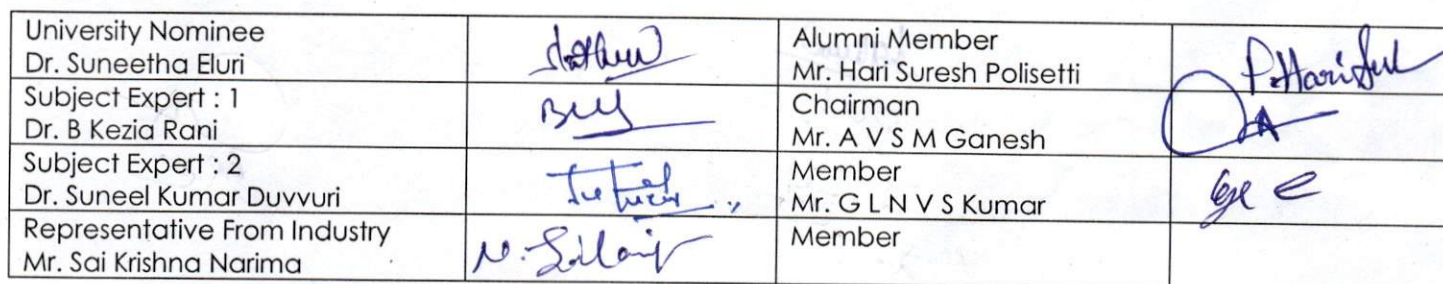 University Nominee
Dr. Suneetha Eluri
Alumni Member
Mr. Hari Suresh Polisetti
P. Hari
Subject Expert : 1
Dr. B Kezia Rani
Chairman
Mr. A V S M Ganesh
Subject Expert : 2
Dr. Suneel Kumar Duvvuri
Member
Mr. G L N V S Kumar
Representative From Industry
Mr. Sai Krishna Narima
Member